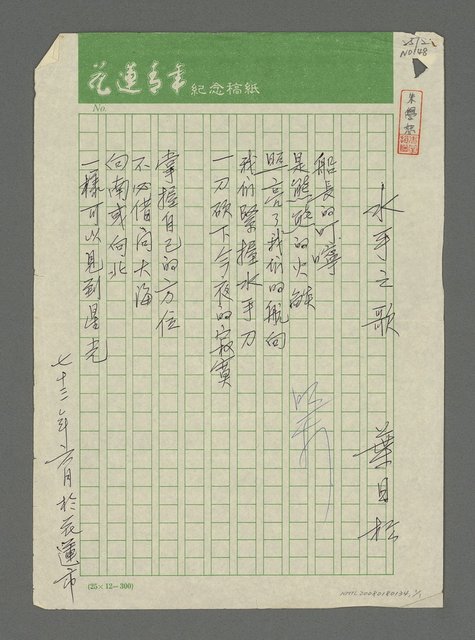 花蓮青年 紀念稿紙
No.
25/2
NO148
水手之歌
葉日松
船長的叮嚀
是熊熊的火燄
照亮了我們的航向
我們緊握水手刀
一刀砍下今夜的寂寞
掌握自己的方位
不必借问大海
向南或向北
一樣可以見到星光
七十三年六月於花蓮市
(25×12=300)
NMTL20080180134, 1/1